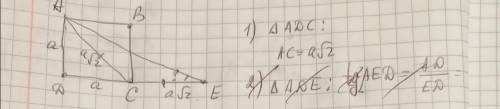 A
B
a
a√2
D
a
C
a√2
E
1) △ADC:
AC = a√2
2) △ADE: tg∠AED = AD/ED =